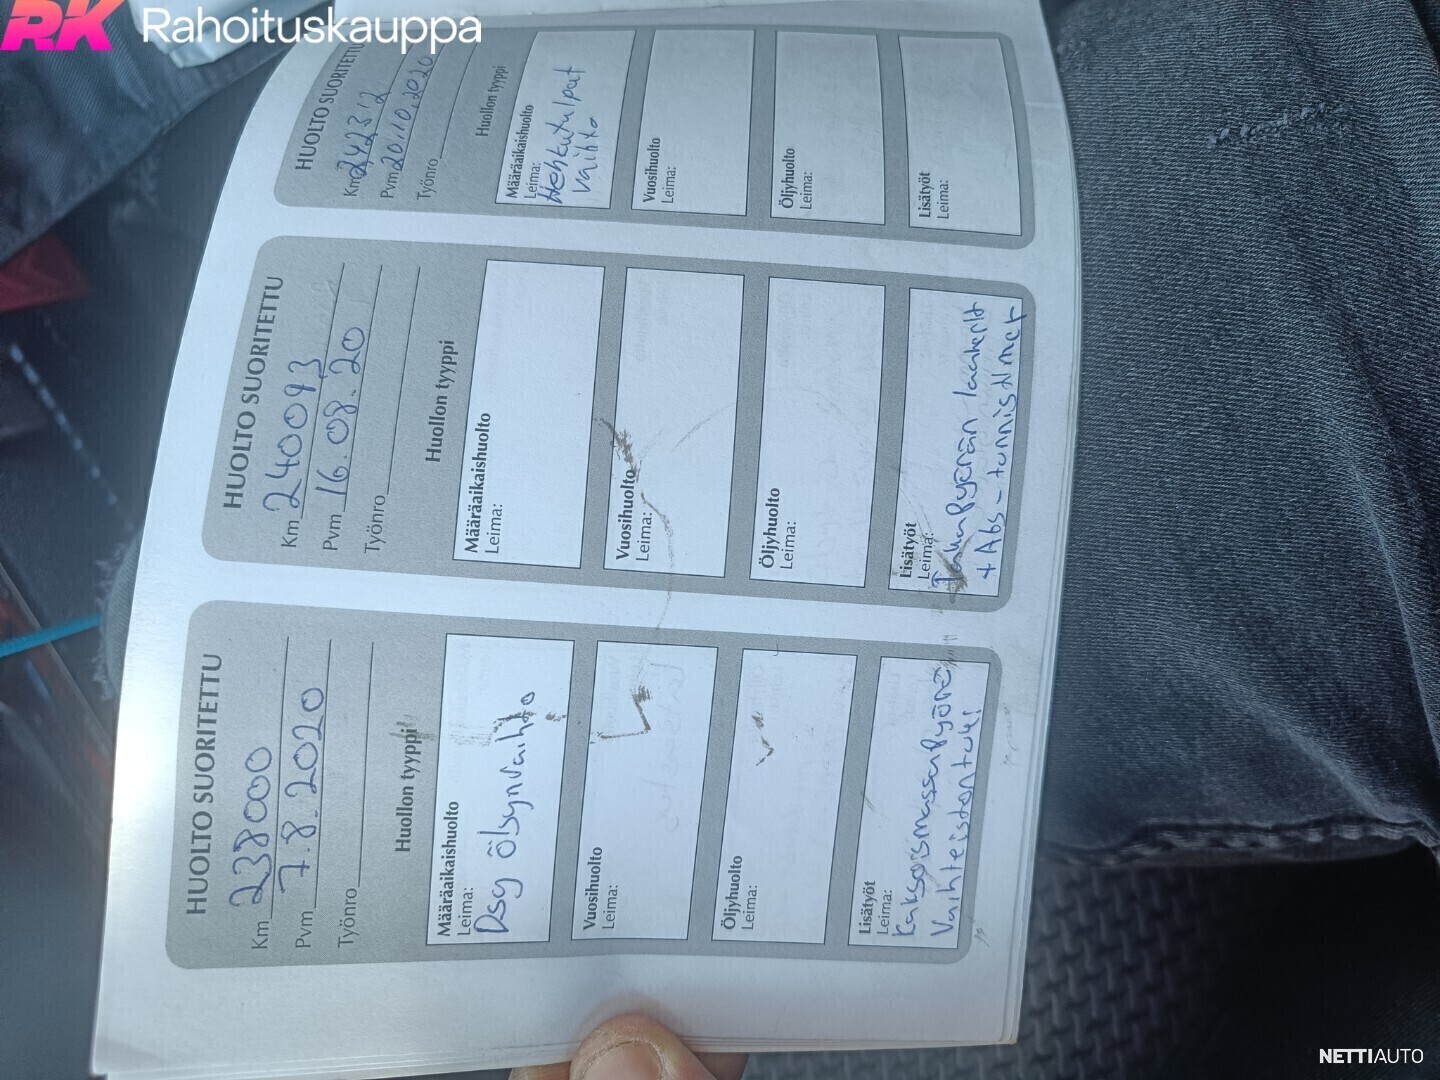 RK Rahoituskauppa
HUOLTO SUORITETTU
Km 238000
Pvm 7.8.2020
Työnro
Huollon tyyppi
Määräaikaishuolto
Leima:
Dsg Öljynvaihto
Vuosihuolto
Leima:
Öljyhuolto
Leima:
Lisätyöt
Leima:
Kaksoismassapyörä
Vaihteistontuki
HUOLTO SUORITETTU
Km 240093
Pvm 16.08.20
Työnro
Huollon tyyppi
Määräaikaishuolto
Leima:
Vuosihuolto
Leima:
Öljyhuolto
Leima:
Lisätyöt
Leima:
Takapyörän laakerit
+ Abs-tunnistimet
HUOLTO SUORITETTU
Km 242312
Pvm 20.10.2020
Työnro
Huollon tyyppi
Määräaikaishuolto
Leima:
Hehkutulpat
vaihto
Vuosihuolto
Leima:
Öljyhuolto
Leima:
Lisätyöt
Leima:
NETTIAUTO